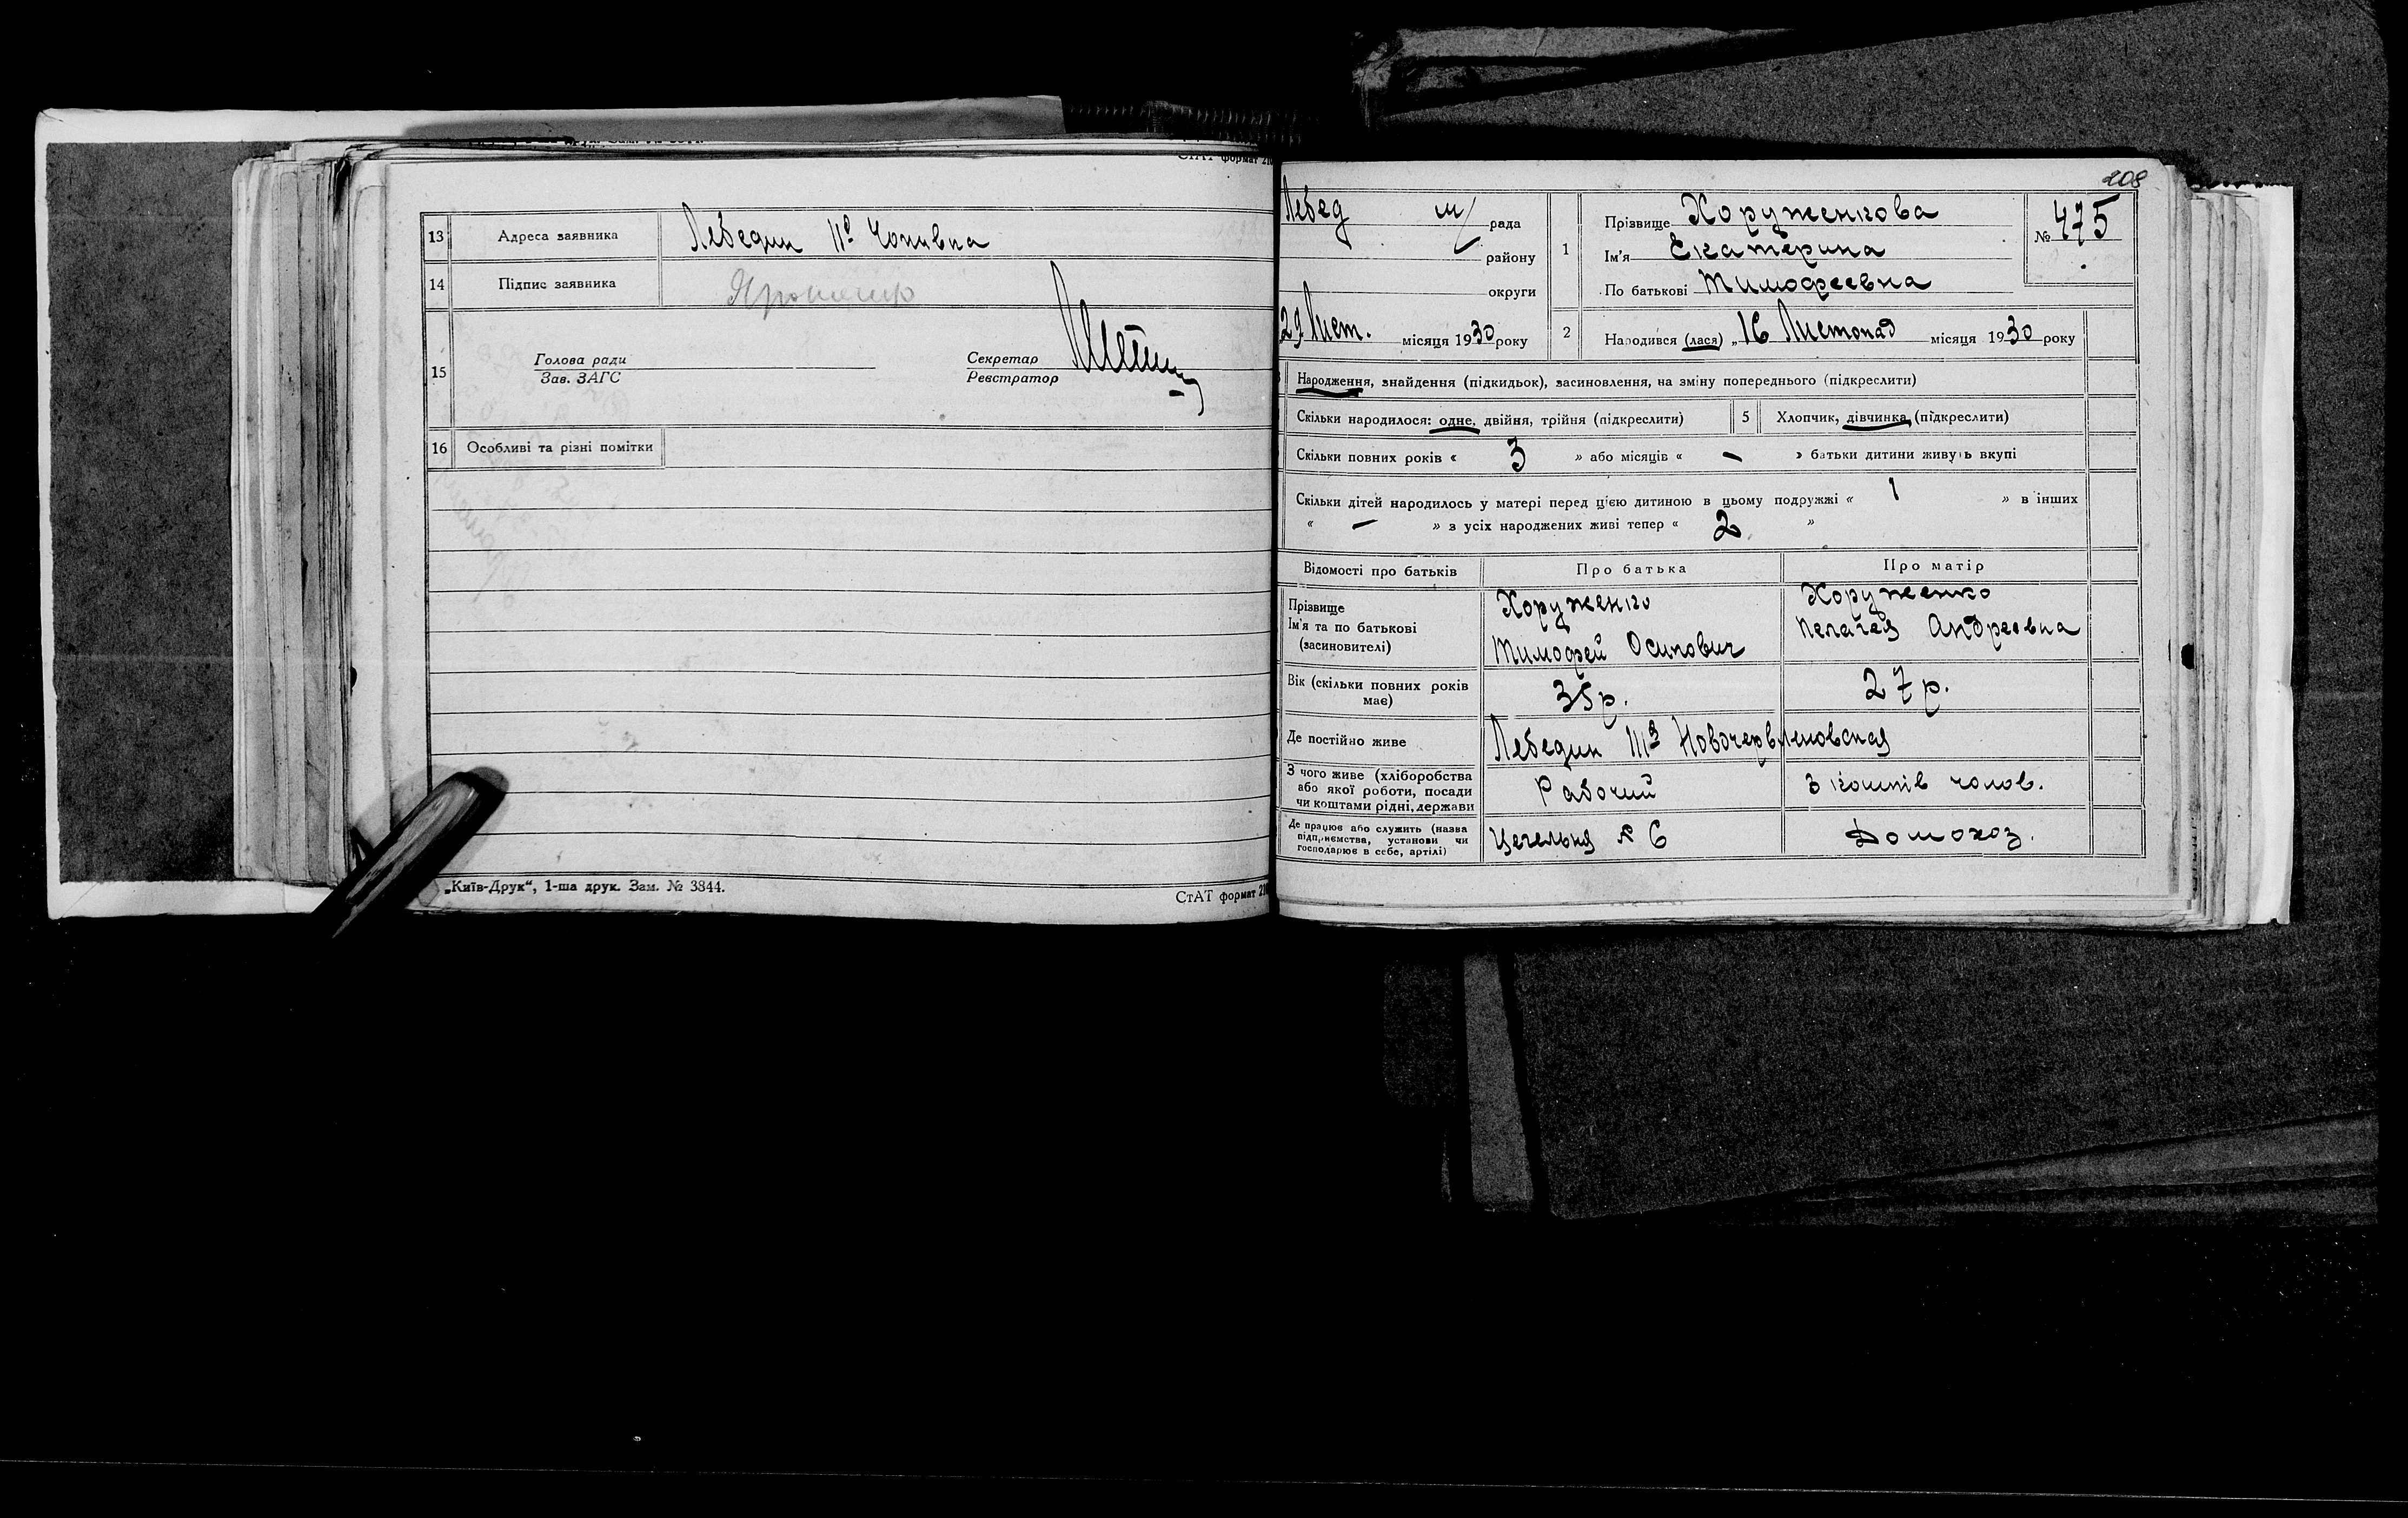 СтАТ формат 210
13 Адреса заявника Лебедин
14 Підпис заявника
15 Голова ради
Зав. ЗАГС
Секретар
Реєстратор
16 Особливі та різні помітки
„Київ-Друк“, 1-ша друк. Зам. № 3844.
СтАТ формат 210
208
Лебед м/ рада
району
округи
29 Лист. місяця 1930 року
1 Прізвище Хоруженкова
Ім'я Екатерина
По батькові Тимофеевна
№ 475
2 Народився (лася) „16 Листопад місяця 1930 року
Народження, знайдення (підкидьок), засиновлення, на зміну попереднього (підкреслити)
Скільки народилося: одне, двійня, трійня (підкреслити) 5 Хлопчик, дівчинка (підкреслити)
Скільки повних років « 3 » або місяців « — » батьки дитини живуть вкупі
Скільки дітей народилось у матері перед цією дитиною в цьому подружжі « 1 » в інших
« — » з усіх народжених живі тепер « 2 »
Відомості про батьків Про батька Про матір
Прізвище
Ім'я та по батькові
(засиновителі)
Хоруженко
Тимофей Осипович
Хоруженко
Пелагея Андреевна
Вік (скільки повних років
має)
35 р.
27 р.
Де постійно живе Лебедин
З чого живе (хліборобства
або якої роботи, посади
чи коштами рідні, держави
Рабочий
З коштів чолов.
Де працює або служить (назва
підприємства, установи чи
господарює в себе, артілі)
Цегельня № 6
Домохоз.